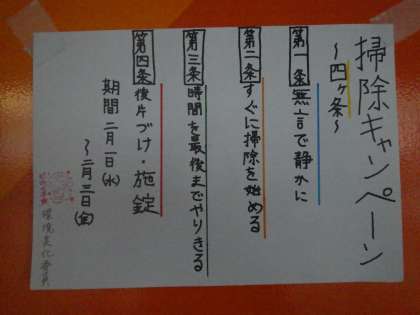 掃除キャンペーン
～四ヶ条～
第一条 無言で静かに
第二条 すぐに掃除を始める
第三条 時間を最後までやりきる
第四条 後片づけ・施錠
期間 二月一日(水)
～二月三日(金)
環境美化委員